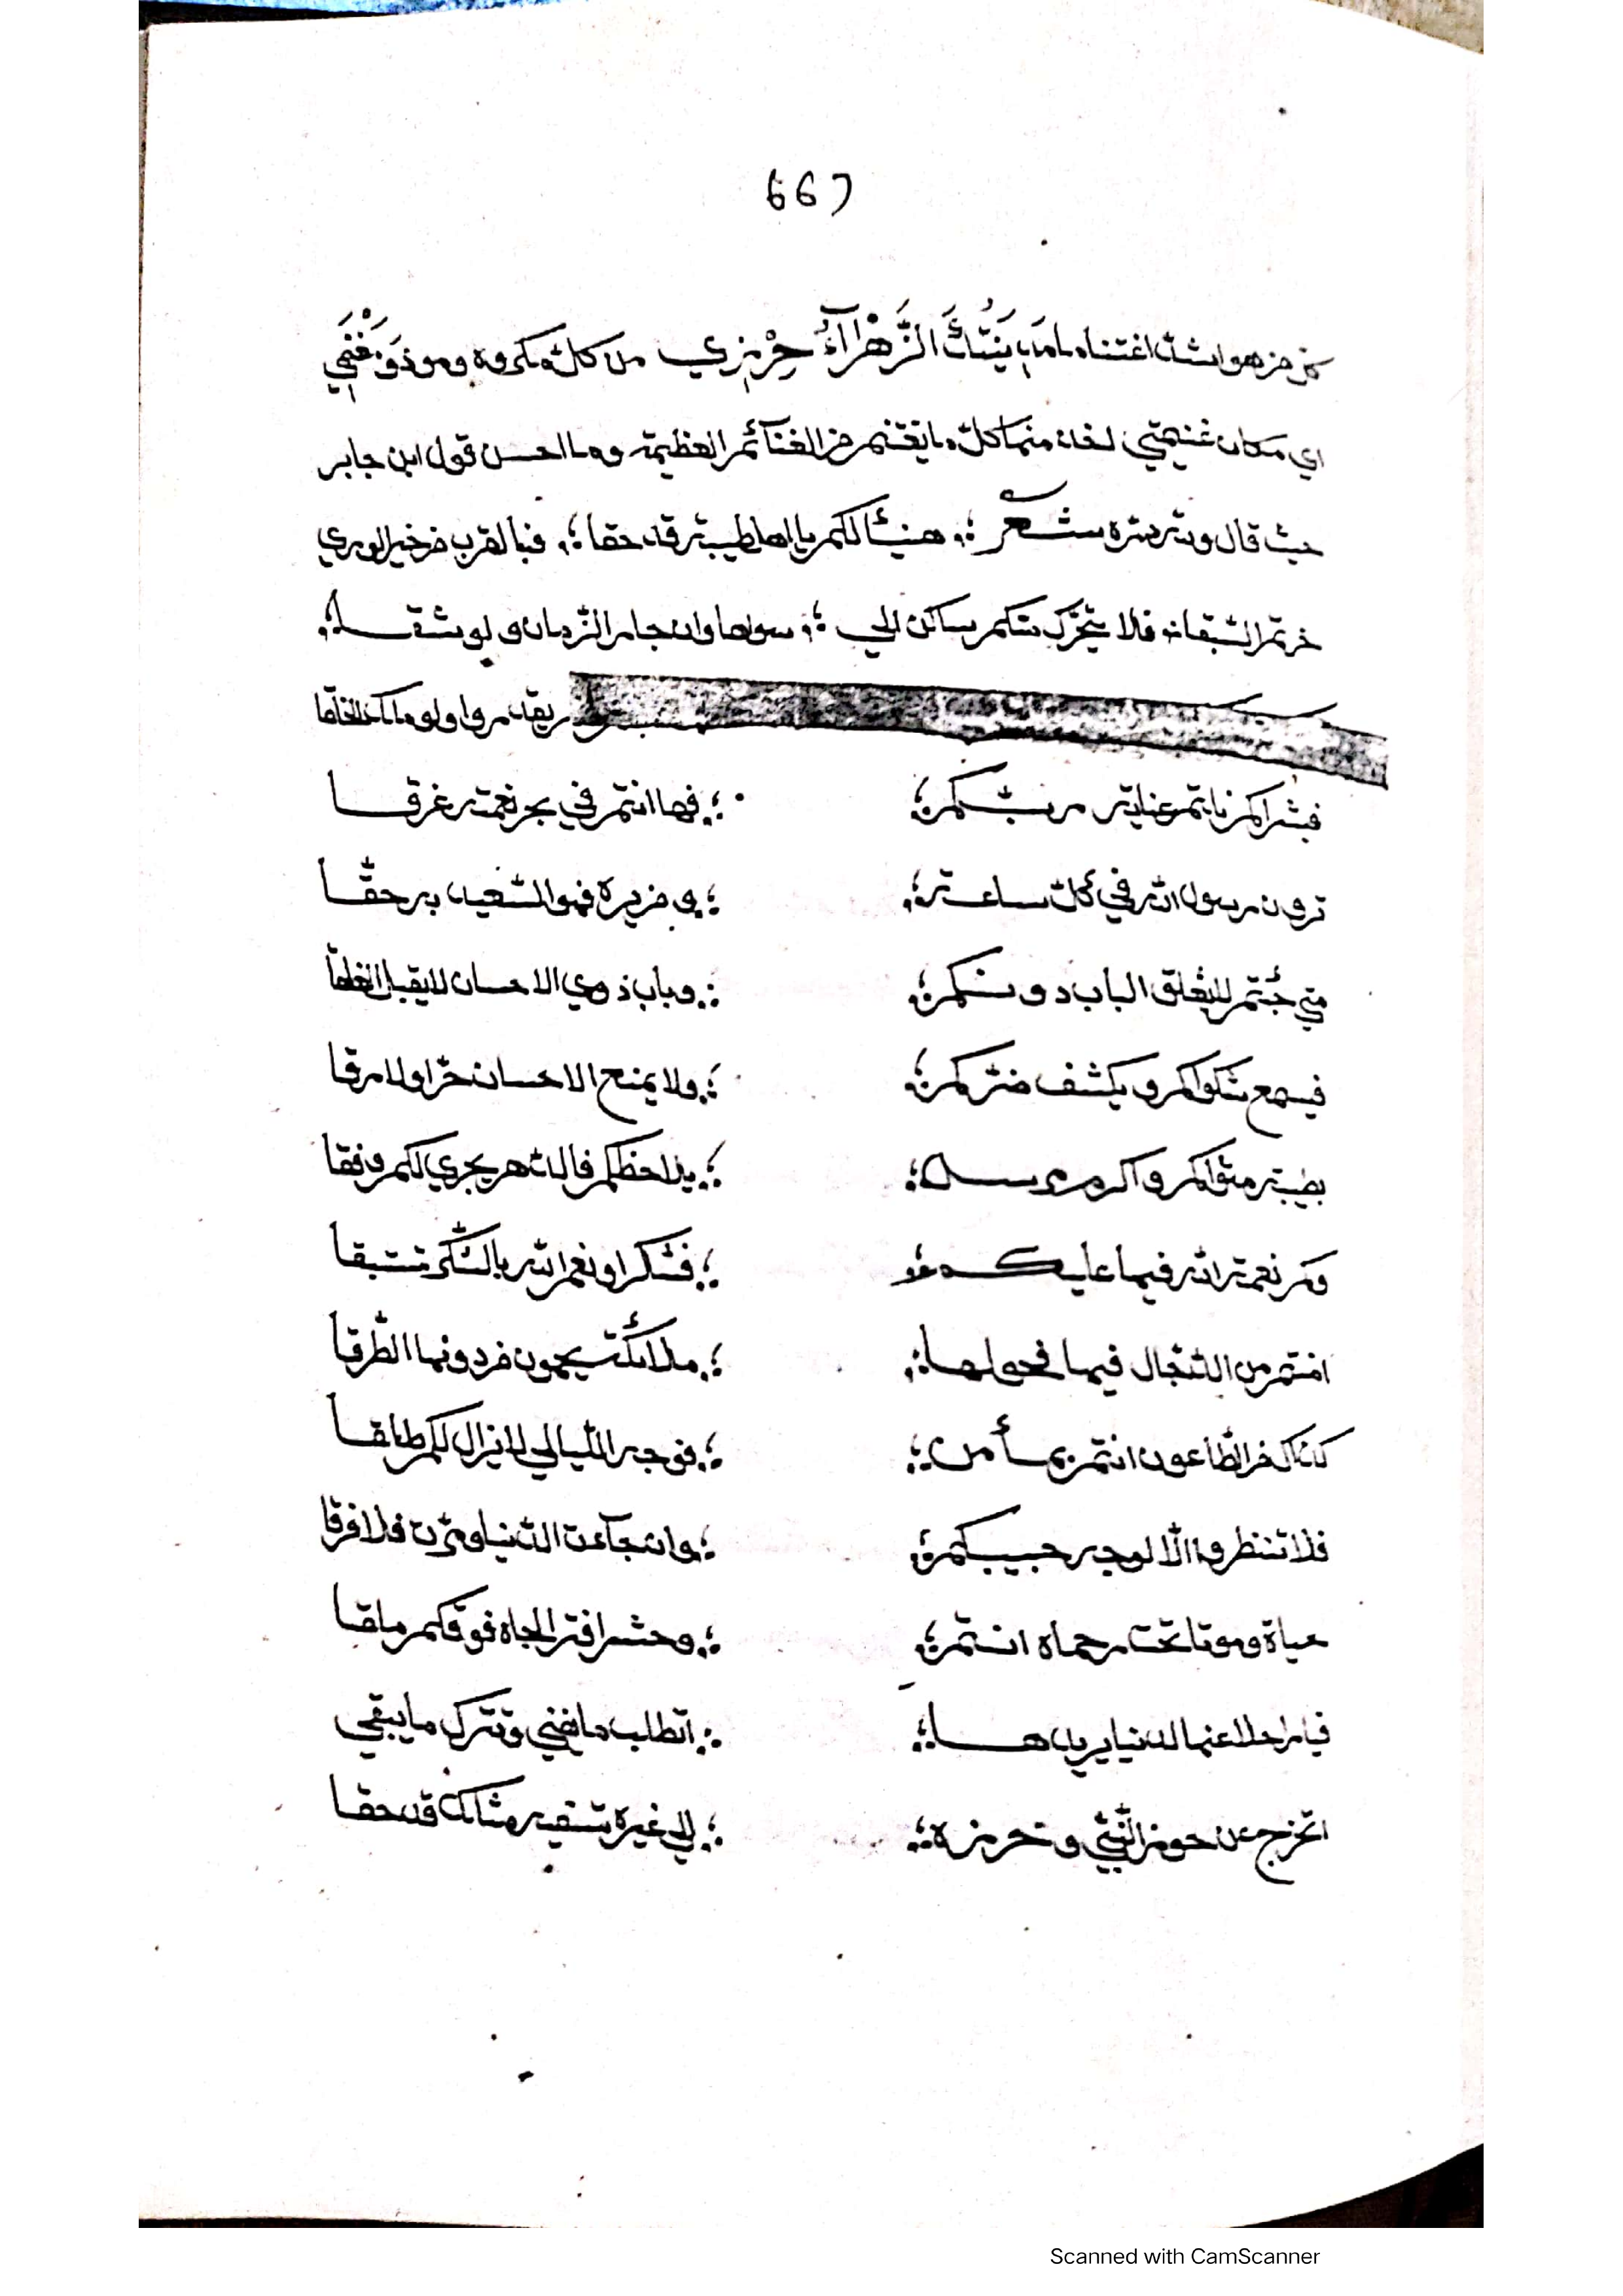 667
هو اشد اغتناما مدينتك الزَّهْرَآءُ حِرْزِي من كل مكروه وموذ وَمَغْنَمِي
اي مكان غنيمتي لان منها كل ما يغتنم من الغنآئم العظيمة وما احسن قول ابن جابر
حيث قال ولله دره شعر هنيئا لكم يا اهل طيبة قد حقا فبالقرب من خير الوري
حزتم السبقا فلا يتحرك منكم ساكن الي سواها وان جار الزمان ولو شقا
ولو ملك الخلقا
فبشراكم نلتم عناية ربكم فها انتم في بحر نعمته غرقا
ترون رسول الله في كل ساعة ومن يره فهو السعيد به حقا
متي جئتم لا يغلق الباب دونكم وباب ذوي الاحسان لا يقبل الغلقا
فيسمع شكواكم ويكشف ضركم ولا يمنع الاحسان حرا ولا رقا
بطيبة مثواكم واكرم مرسل يلاحظكم فالدهر يجري لكم وفقا
وكم نعمة لله فيها عليكم فشكرا ونعم الله بالشكر تستبقا
امنتم من الدجال فيها فحولها ملائكة يحمون من دونها الطرقا
كذاك من الطاعون انتم بمأمن فوجه الليالي لا يزال لكم طلقا
فلا تنظروا الا لوجه حبيبكم وان جآءت الدنيا ومرت فلا فرقا
حياة وموتا تحت رحماه انتم وحشرا فستر الجاه فوقكم ملقا
فيا راحلا عنها لدنيا يريدها اتطلب ما يفني وتترك ما يبقي
اتخرج عن حوز النبي وحرزه الي غيره تسفيه مثالك قد حقا
Scanned with CamScanner